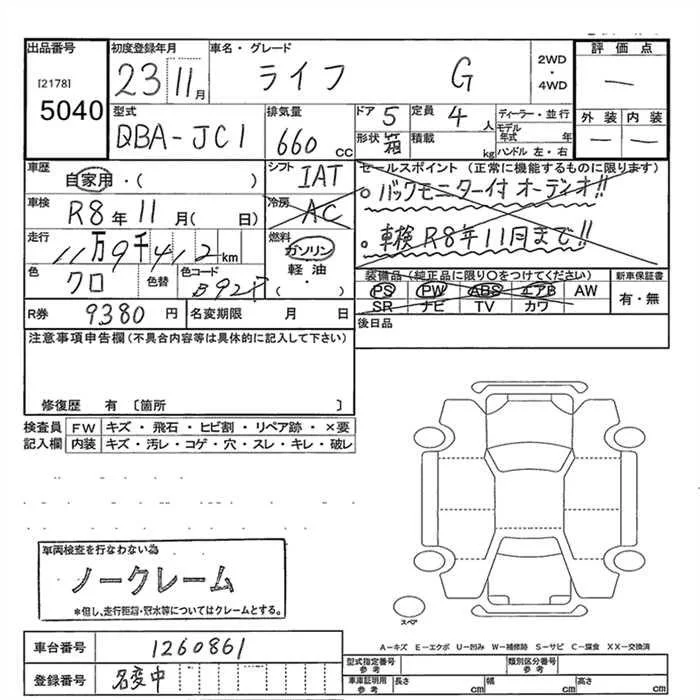 出品番号
[2178]
5040
初度登録年月
23 11月
車名・グレード
ライフ G
2WD
・
4WD
評価点
—
外装 内装
— —
型式
QBA-JC1
排気量
660 cc
ドア 5 定員 4人
形状 箱 積載 kg
ディーラー・並行
モデル年式 年
ハンドル 左・右
車歴
自家用・( )
シフト IAT
車検
R8年11月( 日)
冷房 AC
走行
11万9千412km
燃料
ガソリン
軽油・( )
色
クロ
色替
色コード
B92P
セールスポイント(正常に機能するものに限ります)
○バックモニター付オーディオ!!
○車検R8年11月まで!!
装備品(純正品に限り○をつけてください)
PS PW ABS エアB AW
SR ナビ TV カワ
新車保証書
有・無
R券 9380円
名変期限 月 日
後日品
注意事項申告欄(不具合内容等は具体的に記入して下さい)
修復歴 有〔箇所 〕
検査員記入欄
FW キズ・飛石・ヒビ割・リペア跡・×要
内装 キズ・汚レ・コゲ・穴・スレ・キレ・破レ
車両検査を行なわない為
ノークレーム
*但し、走行距離・冠水等についてはクレームとする。
スペア
A－キズ E－エクボ U－凹み W－補修跡 S－サビ C－腐食 XX－交換済
車台番号 1260861
登録番号 名変中
型式指定番号 参考
類別区分番号 参考
車庫証明用 参考
長さ cm 幅 cm 高さ cm